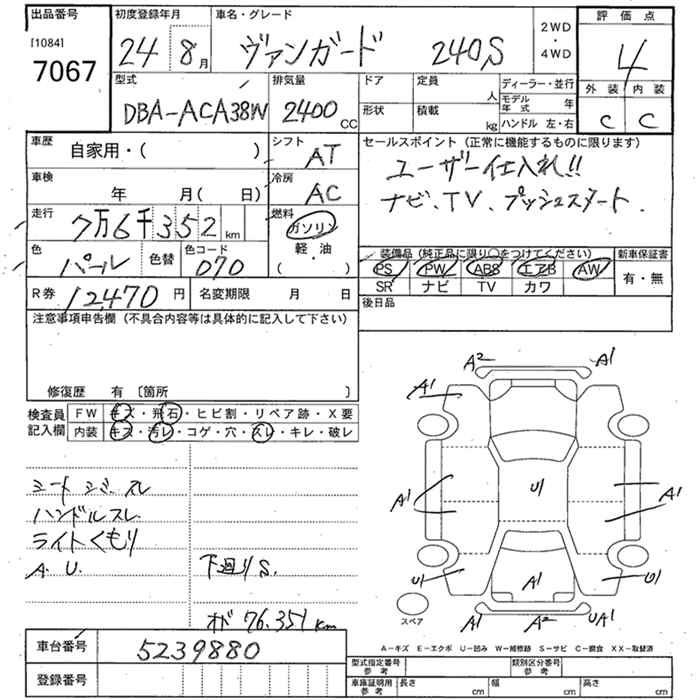 出品番号 初度登録年月 車名・グレード 2WD・4WD 評価点
[1084] 7067 24 8月 ヴァンガード 240S 4
型式 排気量 ドア 定員 人 ディーラー・並行 外装 内装
DBA-ACA38W 2400cc 形状 積載 kg モデル年式 年 ハンドル 左・右 C C
車歴 シフト セールスポイント (正常に機能するものに限ります)
自家用・( ) AT ユーザー仕入れ!!
車検 冷房 ナビ、TV、プッシュスタート.
年 月( 日) AC
走行 燃料
7万6千352km ガソリン
色 色替 色コード 軽・油
パール 070 ( )
装備品(純正品に限り○をつけてください) 新車保証書
PS PW ABS エアB AW 有・無
SR ナビ TV カワ
R券 12,470円 名変期限 月 日 後日品
注意事項申告欄(不具合内容等は具体的に記入して下さい)
修復歴 有 〔箇所 〕
検査員記入欄 FW キズ・飛石・ヒビ割・リペア跡・X要
内装 キズ・汚レ・コゲ・穴・スレ・キレ・破レ
A2 A1
A1
シート シミ スレ
ハンドルスレ
ライトくもり
A.U. 下廻りS.
オド 76.351km
U1
A1 A1
U1 A1 U1
スペア A1 A2 UA1
A-キズ E-エクボ U-凹み W-補修跡 S-サビ C-腐食 XX-取替済
車台番号 5239880
登録番号
型式指定番号 参考 類別区分番号 参考
車庫証明用 参考 長さ cm 幅 cm 高さ cm